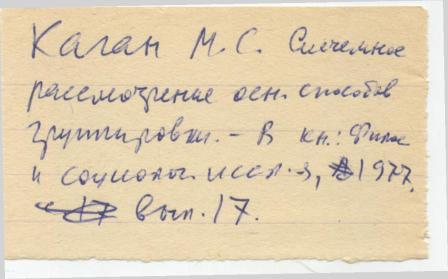 Каган М. С. Системное
рассмотрение осн. способов
группировки. – В кн.: Филос
и социолог. иссл-я, 1977,
вып. 17.